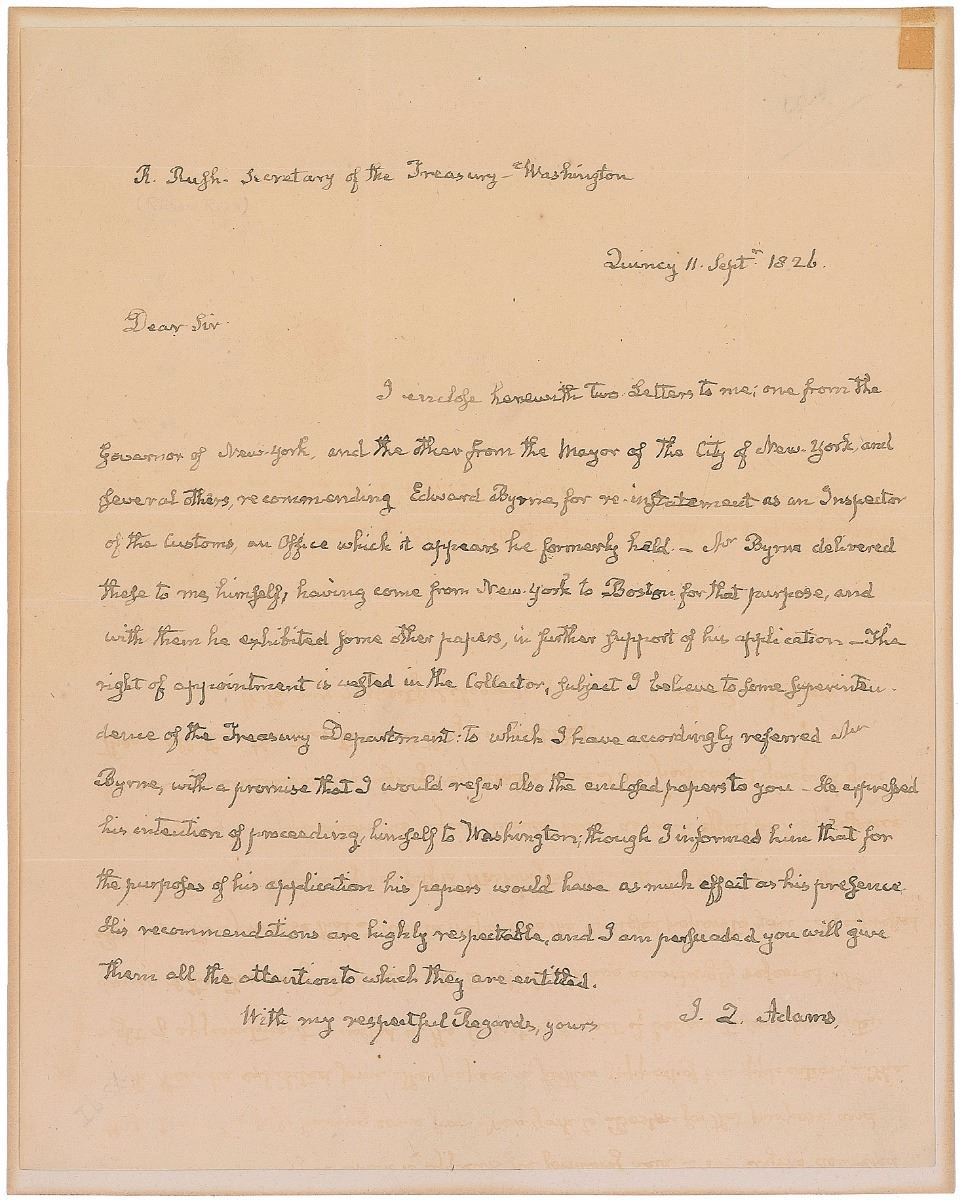 R. Rush. Secretary of the Treasury — Washington
Quincy 11. Septr 1826.
Dear Sir.
I enclose herewith two Letters to me; one from the
Governor of New-York, and the other from the Mayor of the City of New-York, and
several others, recommending Edward Byrne, for re-instatement as an Inspector
of the Customs, an Office which it appears he formerly held. — Mr Byrne delivered
these to me, himself, having come from New-York to Boston for that purpose, and
with them he exhibited some other papers, in further support of his application — The
right of appointment is vested in the Collector, subject I believe to some superinten-
dence of the Treasury Department: to which I have accordingly referred Mr
Byrne, with a promise that I would refer also the enclosed papers to you — He expressed
his intention of proceeding, himself to Washington; though I informed him that for
the purposes of his application his papers would have as much effect as his presence.
His recommendations are highly respectable, and I am persuaded you will give
them all the attention to which they are entitled.
With my respectful Regards, yours J. Q. Adams.